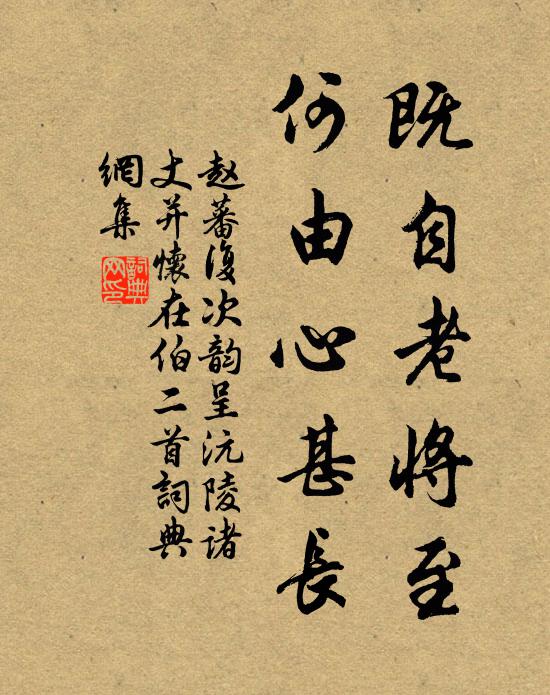 既自老将至
何由心甚長
赵蕃復次韵呈沅陵诸
丈并懷在伯二首詞典
網集
詞典网印